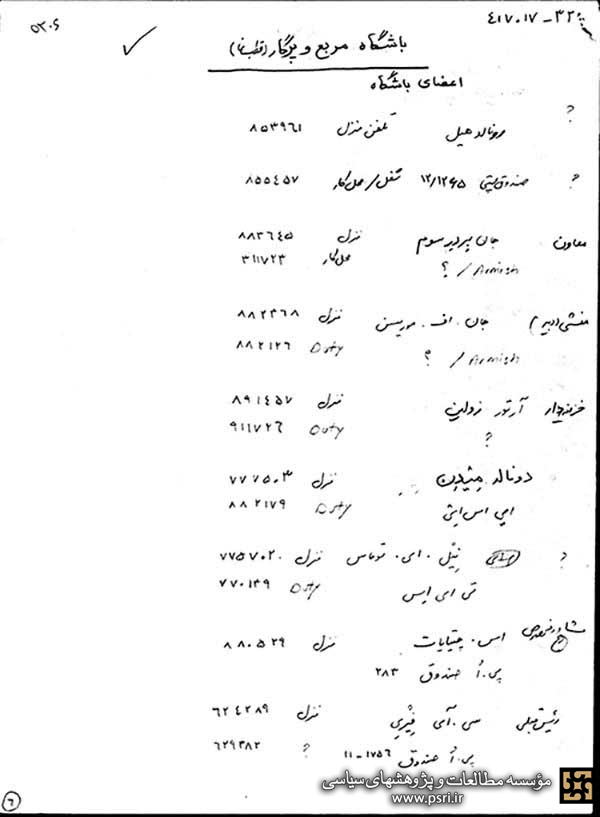 ۵۲۰۶
۴۱۷۰۱۷-۳۲
باشگاه مربع و پرگار (قطب‌نما)
اعضای باشگاه
؟ رونالد هیل تلفن منزل ۸۵۳۹۶۱
؟ صندوق پستی ۱۲/۱۲۶۵ تلفن/محل کار ۸۵۵۴۵۷
معاون جان سوم منزل ۸۸۳۶۴۵
Armish/؟ محل کار ۳۱۱۷۲۳
منشی (دبیر) جان. اف. موریسن منزل ۸۸۲۳۶۸
Armish/؟ Duty ۸۸۲۱۲۶
خزینه‌دار آرتور زولین منزل ۸۹۱۴۵۷
؟ Duty ۹۱۱۷۲۶
دونالد منزل ۷۷۷۵۰۳
ایی اس ایتی Duty ۸۸۲۱۷۹
؟ نیل. ای. توماس منزل ۷۷۵۷۰۲۰
تی ای ایس Duty ۷۷۰۱۴۹
اس. منزل ۸۸۰۵۲۹
پی.اُ صندوق ۲۸۳
رئیس قبلی سی.آی فیری منزل ۶۲۴۲۸۹
پی.اُ صندوق ۱۷۵۶-۱۱ ؟ ۶۲۹۳۸۲
۶
مؤسسه مطالعات و پژوهشهای سیاسی
www.psri.ir